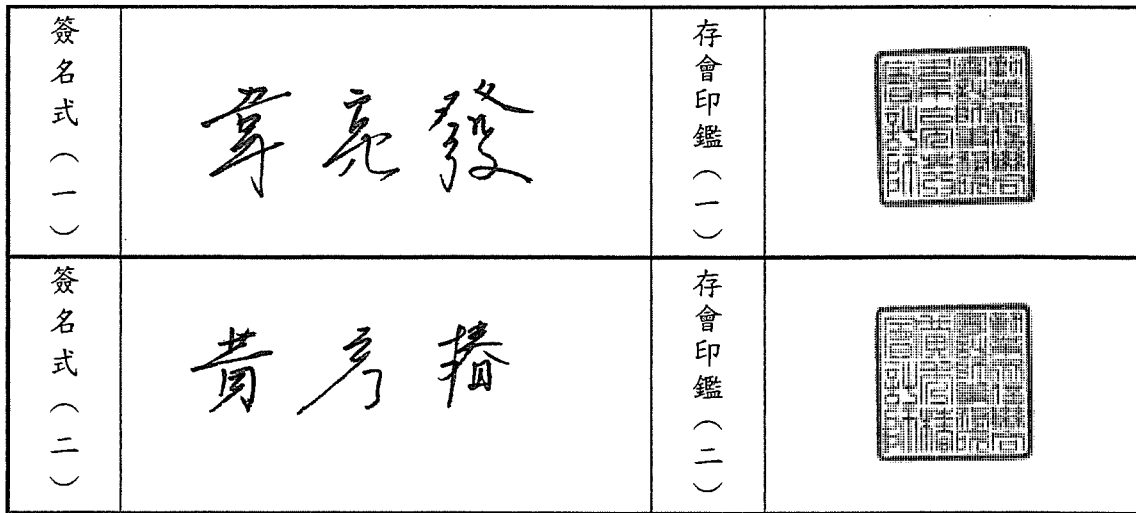 簽名式（一）
韋亮發
存會印鑑（一）
簽名式（二）
黃秀椿
存會印鑑（二）